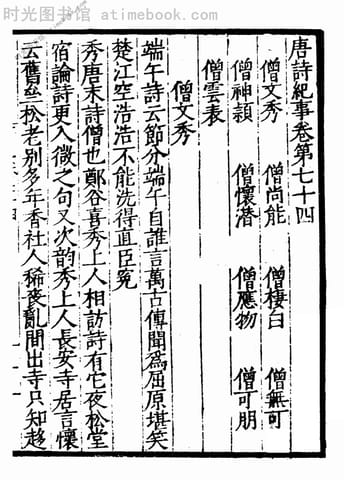 时光图书馆 - atimebook.com
唐詩紀事卷第七十四
僧文秀 僧尚能 僧棲白 僧無可
僧神穎 僧懷濳 僧應物 僧可朋
僧雲表
僧文秀
端午詩云節分端午自誰言萬古傳聞爲屈原堪笑
楚江空浩浩不能洗得直臣冤
秀唐末詩僧也鄭谷喜秀上人相訪詩有它夜松堂
宿論詩更入微之句又次韵秀上人長安寺居言懷
云舊壑松老別多年香社人稀喪亂間出寺只知趍